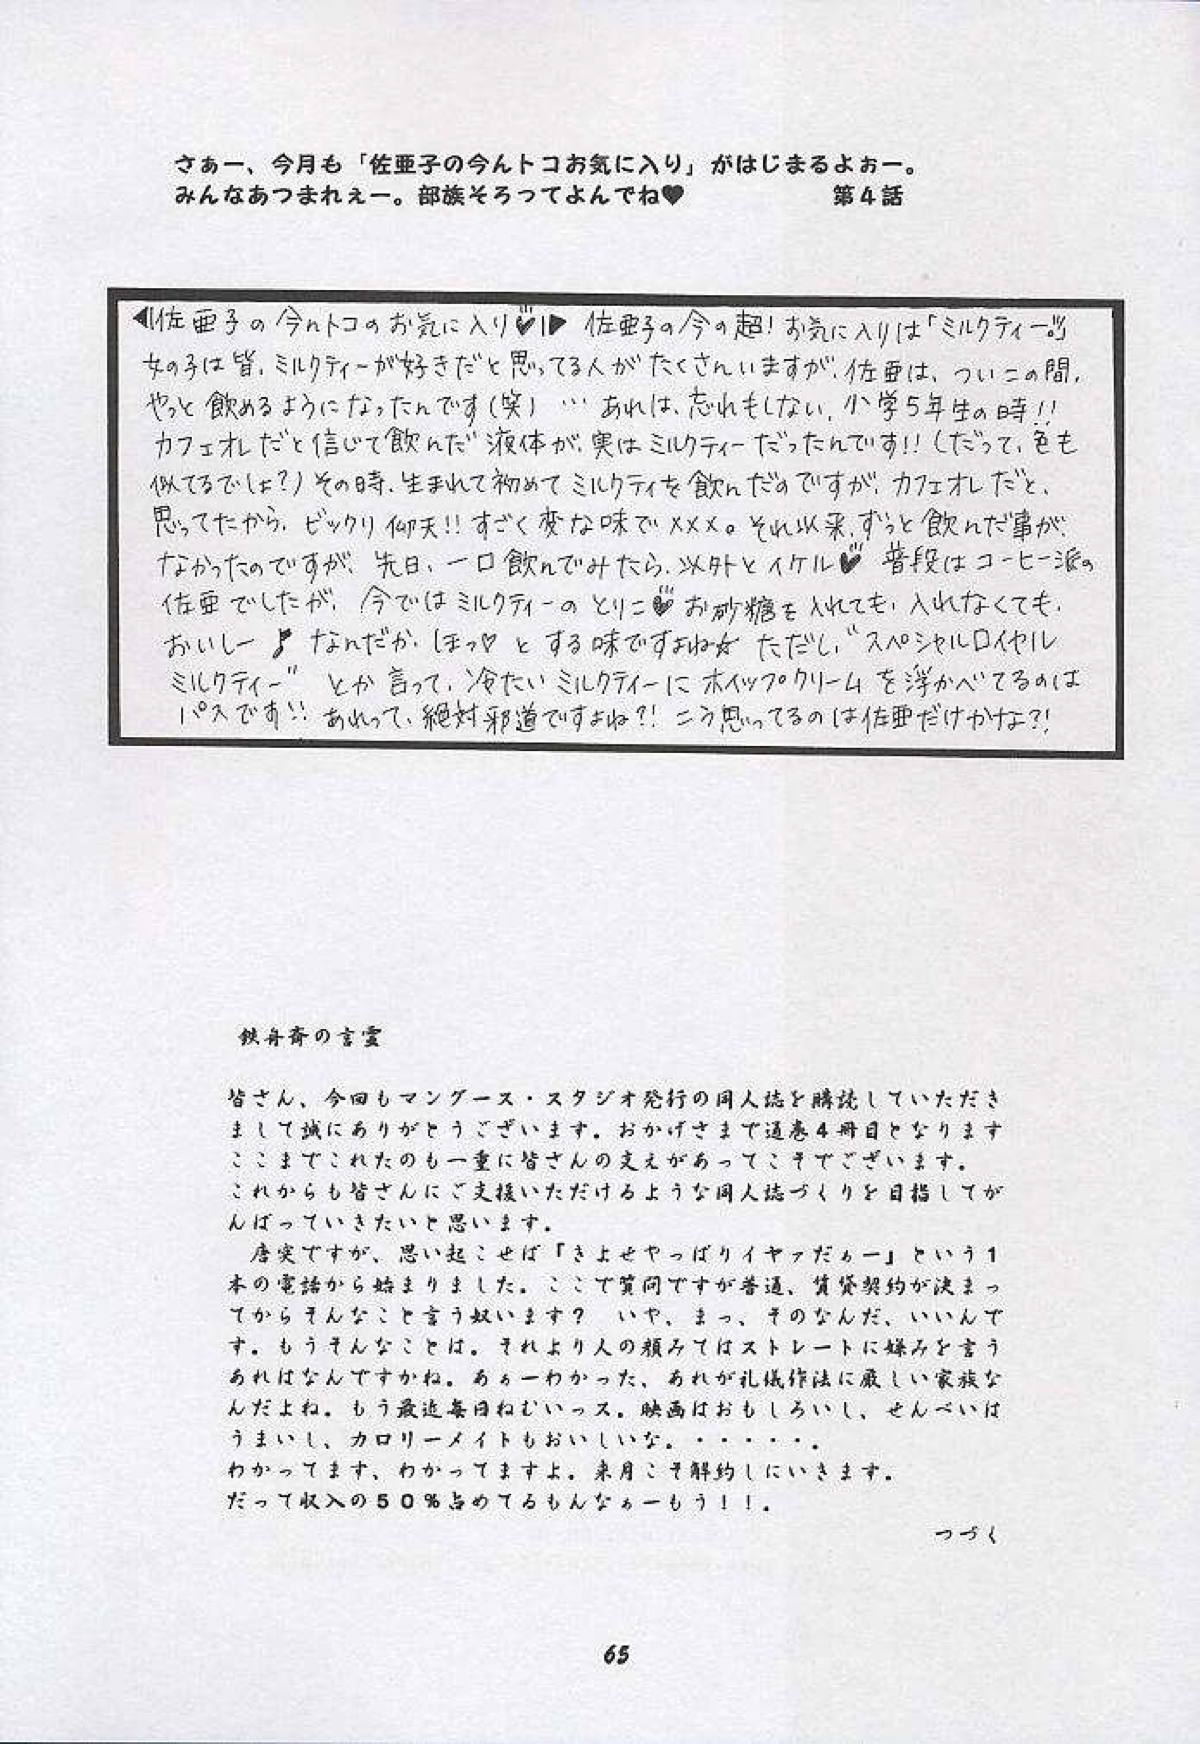 さぁー、今月も「佐亜子の今んトコお気に入り」がはじまるよぉー。
みんなあつまれぇー。部族そろってよんでね♥ 第４話
◀|佐亜子の今んトコのお気に入り♥|▶ 佐亜子の今の超!お気に入りは「ミルクティー」!!
女の子は皆、ミルクティーが好きだと思ってる人がたくさんいますが、佐亜は、ついこの間、
やっと飲めるようになったんです(笑) … あれは、忘れもしない、小学5年生の時!!
カフェオレだと信じて飲んだ液体が、実はミルクティーだったんです!!(だって、色も
似てるでしょ?)その時、生まれて初めてミルクティを飲んだのですが、カフェオレだと、
思ってたから、ビックリ仰天!! すごく変な味で×××。それ以来、ずっと飲んだ事が、
なかったのですが、先日、一口飲んでみたら、以外とイケル♥ 普段はコーヒー派の
佐亜でしたが、今ではミルクティーのとりこ♥お砂糖を入れても、入れなくても、
おいしー♪ なんだか、ほっ♡とする味ですよね☆ ただし、"スペシャルロイヤル
ミルクティー"とか言って、冷たいミルクティーにホイップクリームを浮かべてるのは
パスです!! あれって、絶対邪道ですよね?! こう思ってるのは佐亜だけかなよ?!
鉄舟斎の言霊
皆さん、今回もマングース・スタジオ発行の同人誌を購読していただき
まして誠にありがとうございます。おかげさまで通巻４冊目となります
ここまでこれたのも一重に皆さんの支えがあってこそでございます。
これからも皆さんにご支援いただけるような同人誌づくりを目指してが
んばっていきたいと思います。
唐突ですが、思い起こせば「きよせやっぱりイヤァだぁー」という１
本の電話から始まりました。ここで質問ですが普通、賃貸契約が決まっ
てからそんなこと言う奴います？　いや、まっ、そのなんだ、いいんで
す。もうそんなことは。それより人の顔みてはストレートに嫌みを言う
あれはなんですかね。あぁーわかった、あれが礼儀作法に厳しい家族な
んだよね。もう最近毎日ねむいっス。映画はおもしろいし、せんべいは
うまいし、カロリーメイトもおいしいな。・・・・・。
わかってます、わかってますよ。来月こそ解約しにいきます。
だって収入の５０％占めてるもんなぁーもう！！。
つづく
65